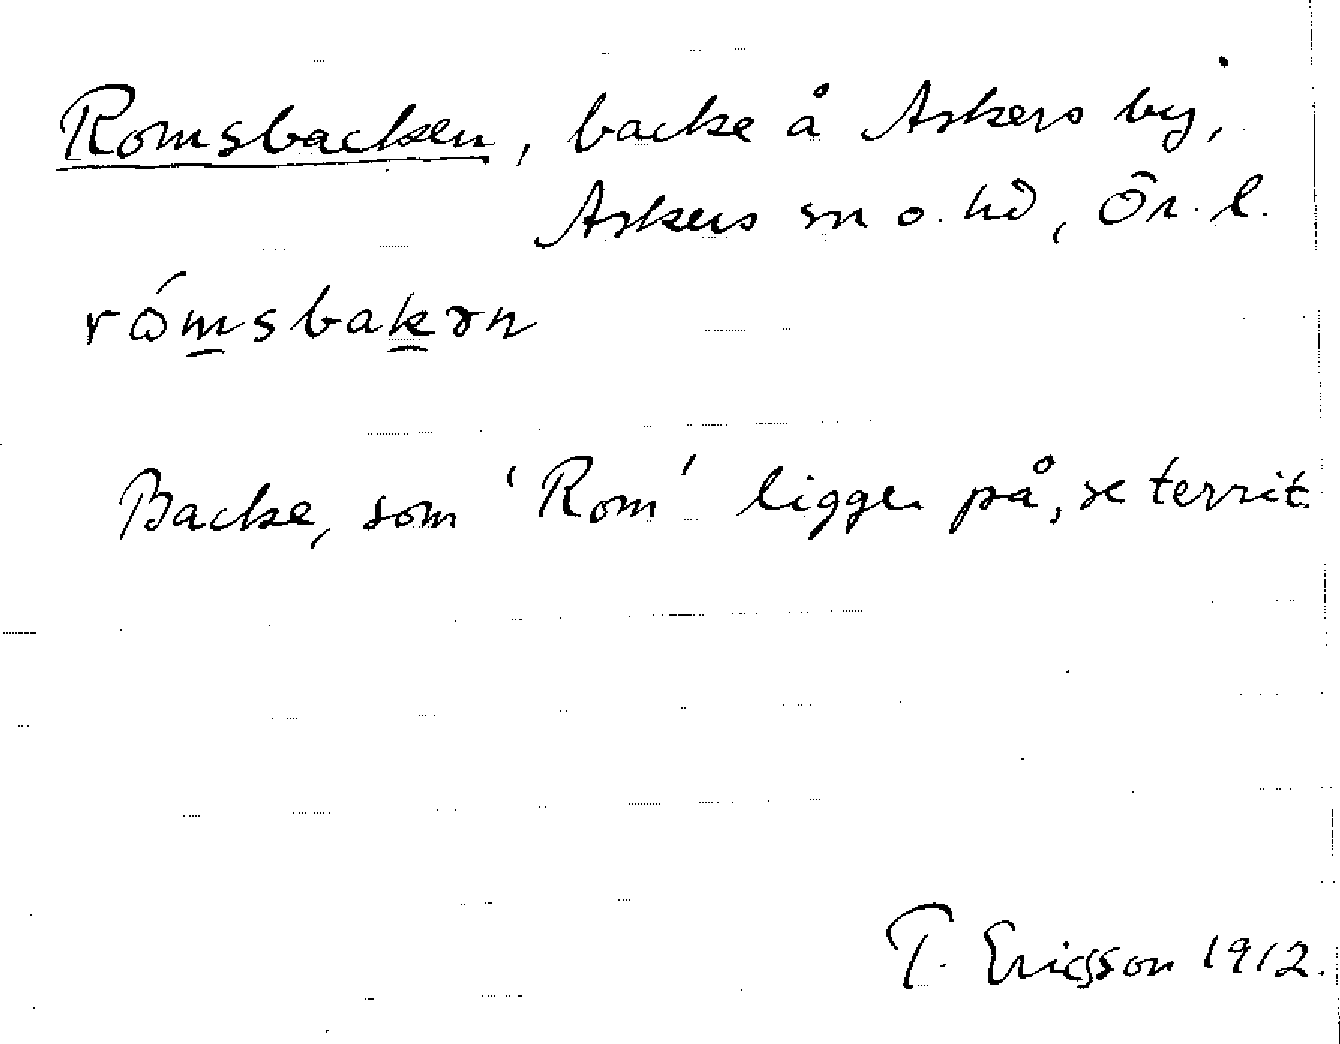 Romsbacken, backe å Askers by,
Askers sn o. hd, Ör. l.
rómsbakən
Backe, som 'Rom' ligger på, se territ.
T. Ericsson 1912.